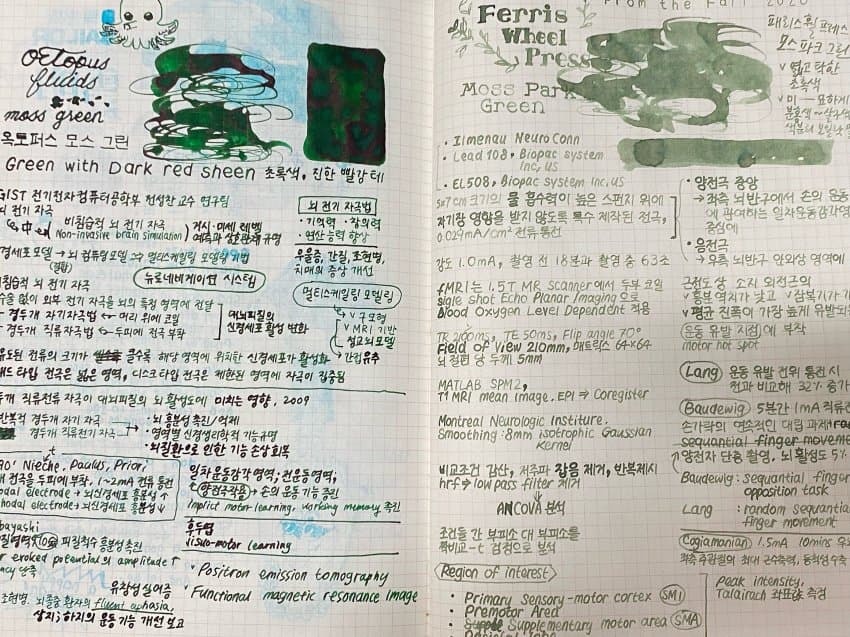 octopus
fluids
moss green
옥토퍼스 모스 그린
Green with Dark red sheen 초록색, 진한 빨강 테
GIST 전기전자컴퓨터공학부 전성찬 교수 연구팀
뇌 전기 자극
비침습적 뇌 전기 자극
Non-invasive brain simulation
거시·미세 레벨
예측과 상호관계 규명
뇌 전기 자극법
• 기억력 • 창의력
• 연산능력 향상
우울증, 간질, 조현병,
치매의 증상 개선
경세포 모델 → 뇌 컴퓨팅모델 → 멀티스케일링 모델링 기법
뉴로네비게이션 시스템
멀티스케일링 모델링
침습적 뇌 전기 자극
수술 없이 외부 전기 자극을 뇌의 특정 영역에 전달
경두개 자기자극법 ← 머리 위에 코일
경두개 직류자극법 ← 두피에 전극 부착
대뇌피질의
신경세포 활성 변화
v 구 모형
v MRI 기반
설교뇌모델
→ 간접유추
유도된 전류의 크기가 클수록 해당 영역에 위치한 신경세포가 활성화
패드 타입 전극은 넓은 영역, 디스크 타입 전극은 제한된 영역에 자극이 집중됨
두개 직류전류 자극이 대뇌피질의 뇌 활성도에 미치는 영향, 2009
반복적 경두개 자기 자극
경두개 직류전류 자극
• 뇌 흥분성 촉진/억제
• 영역별 신경생리학적 기능규명
• 뇌질환으로 인한 기능 손상 회복
90' Nieche, Paulus, Priori
전극을 두피에 부착, 1~2mA 전류 통전
nodal electrode → 뇌신경세포 흥분성 ↑
thodal electrode → 뇌신경세포 흥분성 ↓
일차운동감각영역; 전운동영역;
양전극작용 → 손의 운동기능 증진
implict motor learning, working memory 촉진
후두엽
visuo-motor learning
bayashi
피질척수 흥분성촉진
r evoked potential의 amplitude ↑
ncy 단축
유창성 실어증
조현병, 뇌졸중 환자의 fluent aphasia,
상지; 하지의 운동기능 개선 보고
• Positron emission tomography
• Functional magnetic resonance image
From the Fall 2020
Ferris
Wheel
Press
Moss Park
Green
페리스 휠 프레스
모스 파크 그린
v 엷고 탁한
초록색
v 미—묘하게
• Ilmenau NeuroConn
• Lead 108, Biopac system
inc, us
• EL508, Biopac system inc, us
5x7cm 크기의 물 흡수력이 높은 스펀지 위에
자기장 영향을 받지 않도록 특수 제작된 전극,
0.029mA/cm² 전류 통전
강도 1.0mA, 촬영 전 18분과 촬영 중 63초
• 양전극 중앙
→ 좌측 뇌반구에서 손의 운동
에 관여하는 일차운동감각영
중심에
• 음전극
→ 우측 뇌반구 안와상 영역에
fMRI는 1.5T MR Scanner에서 두부 코일
sigle shot Echo Planar Imaging으로
Blood Oxygen Level Dependent 적용
TR 2100ms, TE 50ms, Flip angle 70°
Field of View 210mm, 매트릭스 64×64
뇌 절편 당 두께 5mm
근전도 상 소지 외전근의
v 흥분 역치가 낮고 v 잠복기가
v 평균 진폭이 가장 높게 유발되
운동 유발 지점에 부착
motor hot spot
MATLAB SPM2,
T1 MRI mean image. EPI ⇒ Coregister
Montreal Neurologic Institute.
Smoothing : 8mm isotrophic Gaussian
kernel
비교조건 감산, 저주파 잡음 제거, 반복제시
hrf → low pass filter 제거
ANCOVA 분석
조건들 간 부피소 대 부피소를
짝비교-t 검정으로 분석
Lang 운동 유발 전위 통전 시
전과 비교해 32% 증가
Baudewig 5분간 1mA 직류전
손가락의 연속적인 대립 과제
sequential finger movement
양전자 단층 촬영, 뇌 활성도 5%
Baudewig : sequential finger
opposition task
Lang : random sequential
finger movement
Cogiamanian 1.5mA 10mins
좌측 주관절의 최대 근수축력, 동척성수축
Peak intensity,
Talairach 좌표값 측정
Region of interest
• Primary Sensory-motor cortex SM1
• Premotor Area
• Supplementary motor area SMA